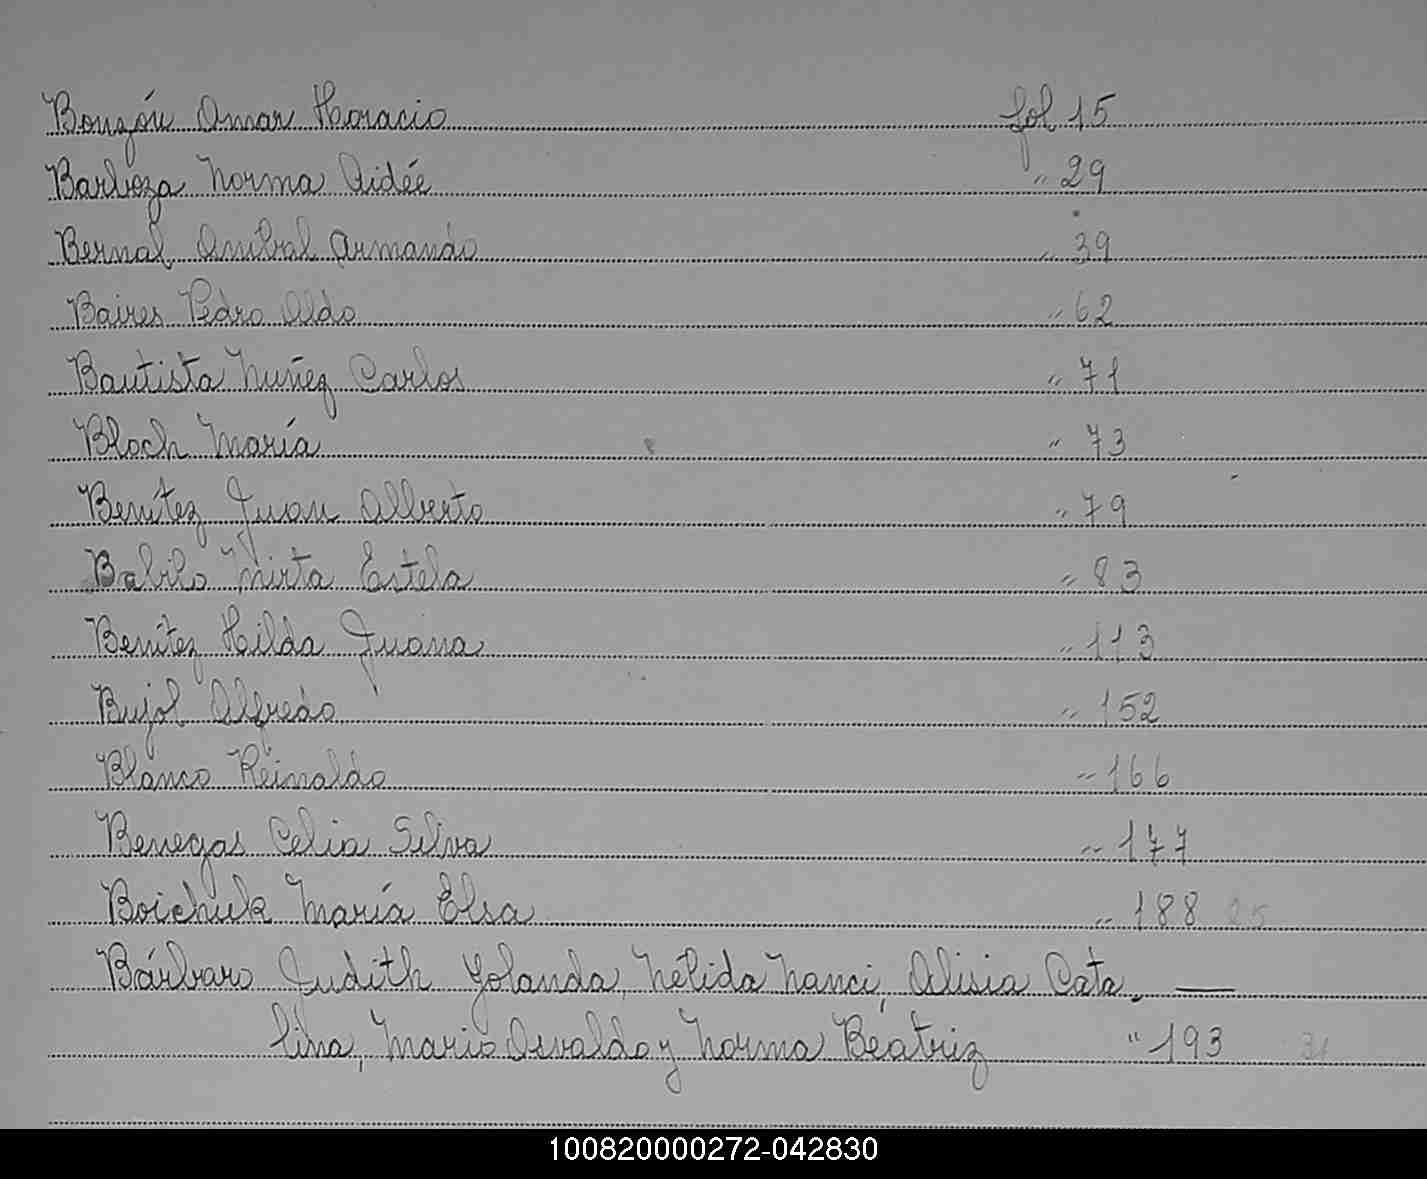 Bouzón Omar Horacio fol 15
Barboza Norma Aidée " 29
Bernal Anibal Armando " 39
Baires Pedro Aldo " 62
Bautista Nuñez Carlos " 71
Bloch María " 73
Benítez Juan Alberto " 79
Babilo Mirta Estela " 83
Benítez Hilda Juana " 113
Bujol Alfredo " 152
Blanco Reinaldo " 166
Benegas Celia Silva " 177
Boichuk María Elsa " 188 25
Bárbaro Judith Yolanda, Nélida Nanci, Alisia Cata
lina, Mario Osvaldo y Norma Beatriz " 193 31
100820000272-042830